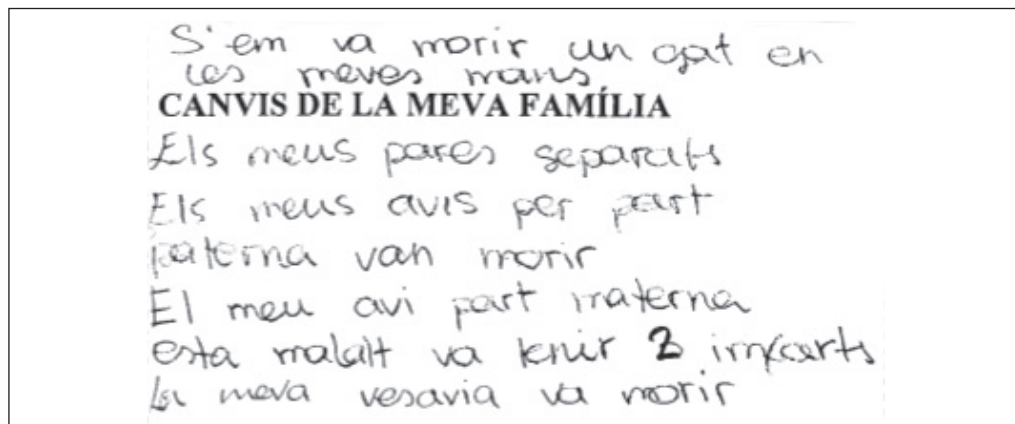 S'em va morir un gat en
les meves mans
CANVIS DE LA MEVA FAMÍLIA
Els meus pares separats
Els meus avis per part
paterna van morir
El meu avi part materna
esta malalt va tenir infarts
La meva vesavia va morir